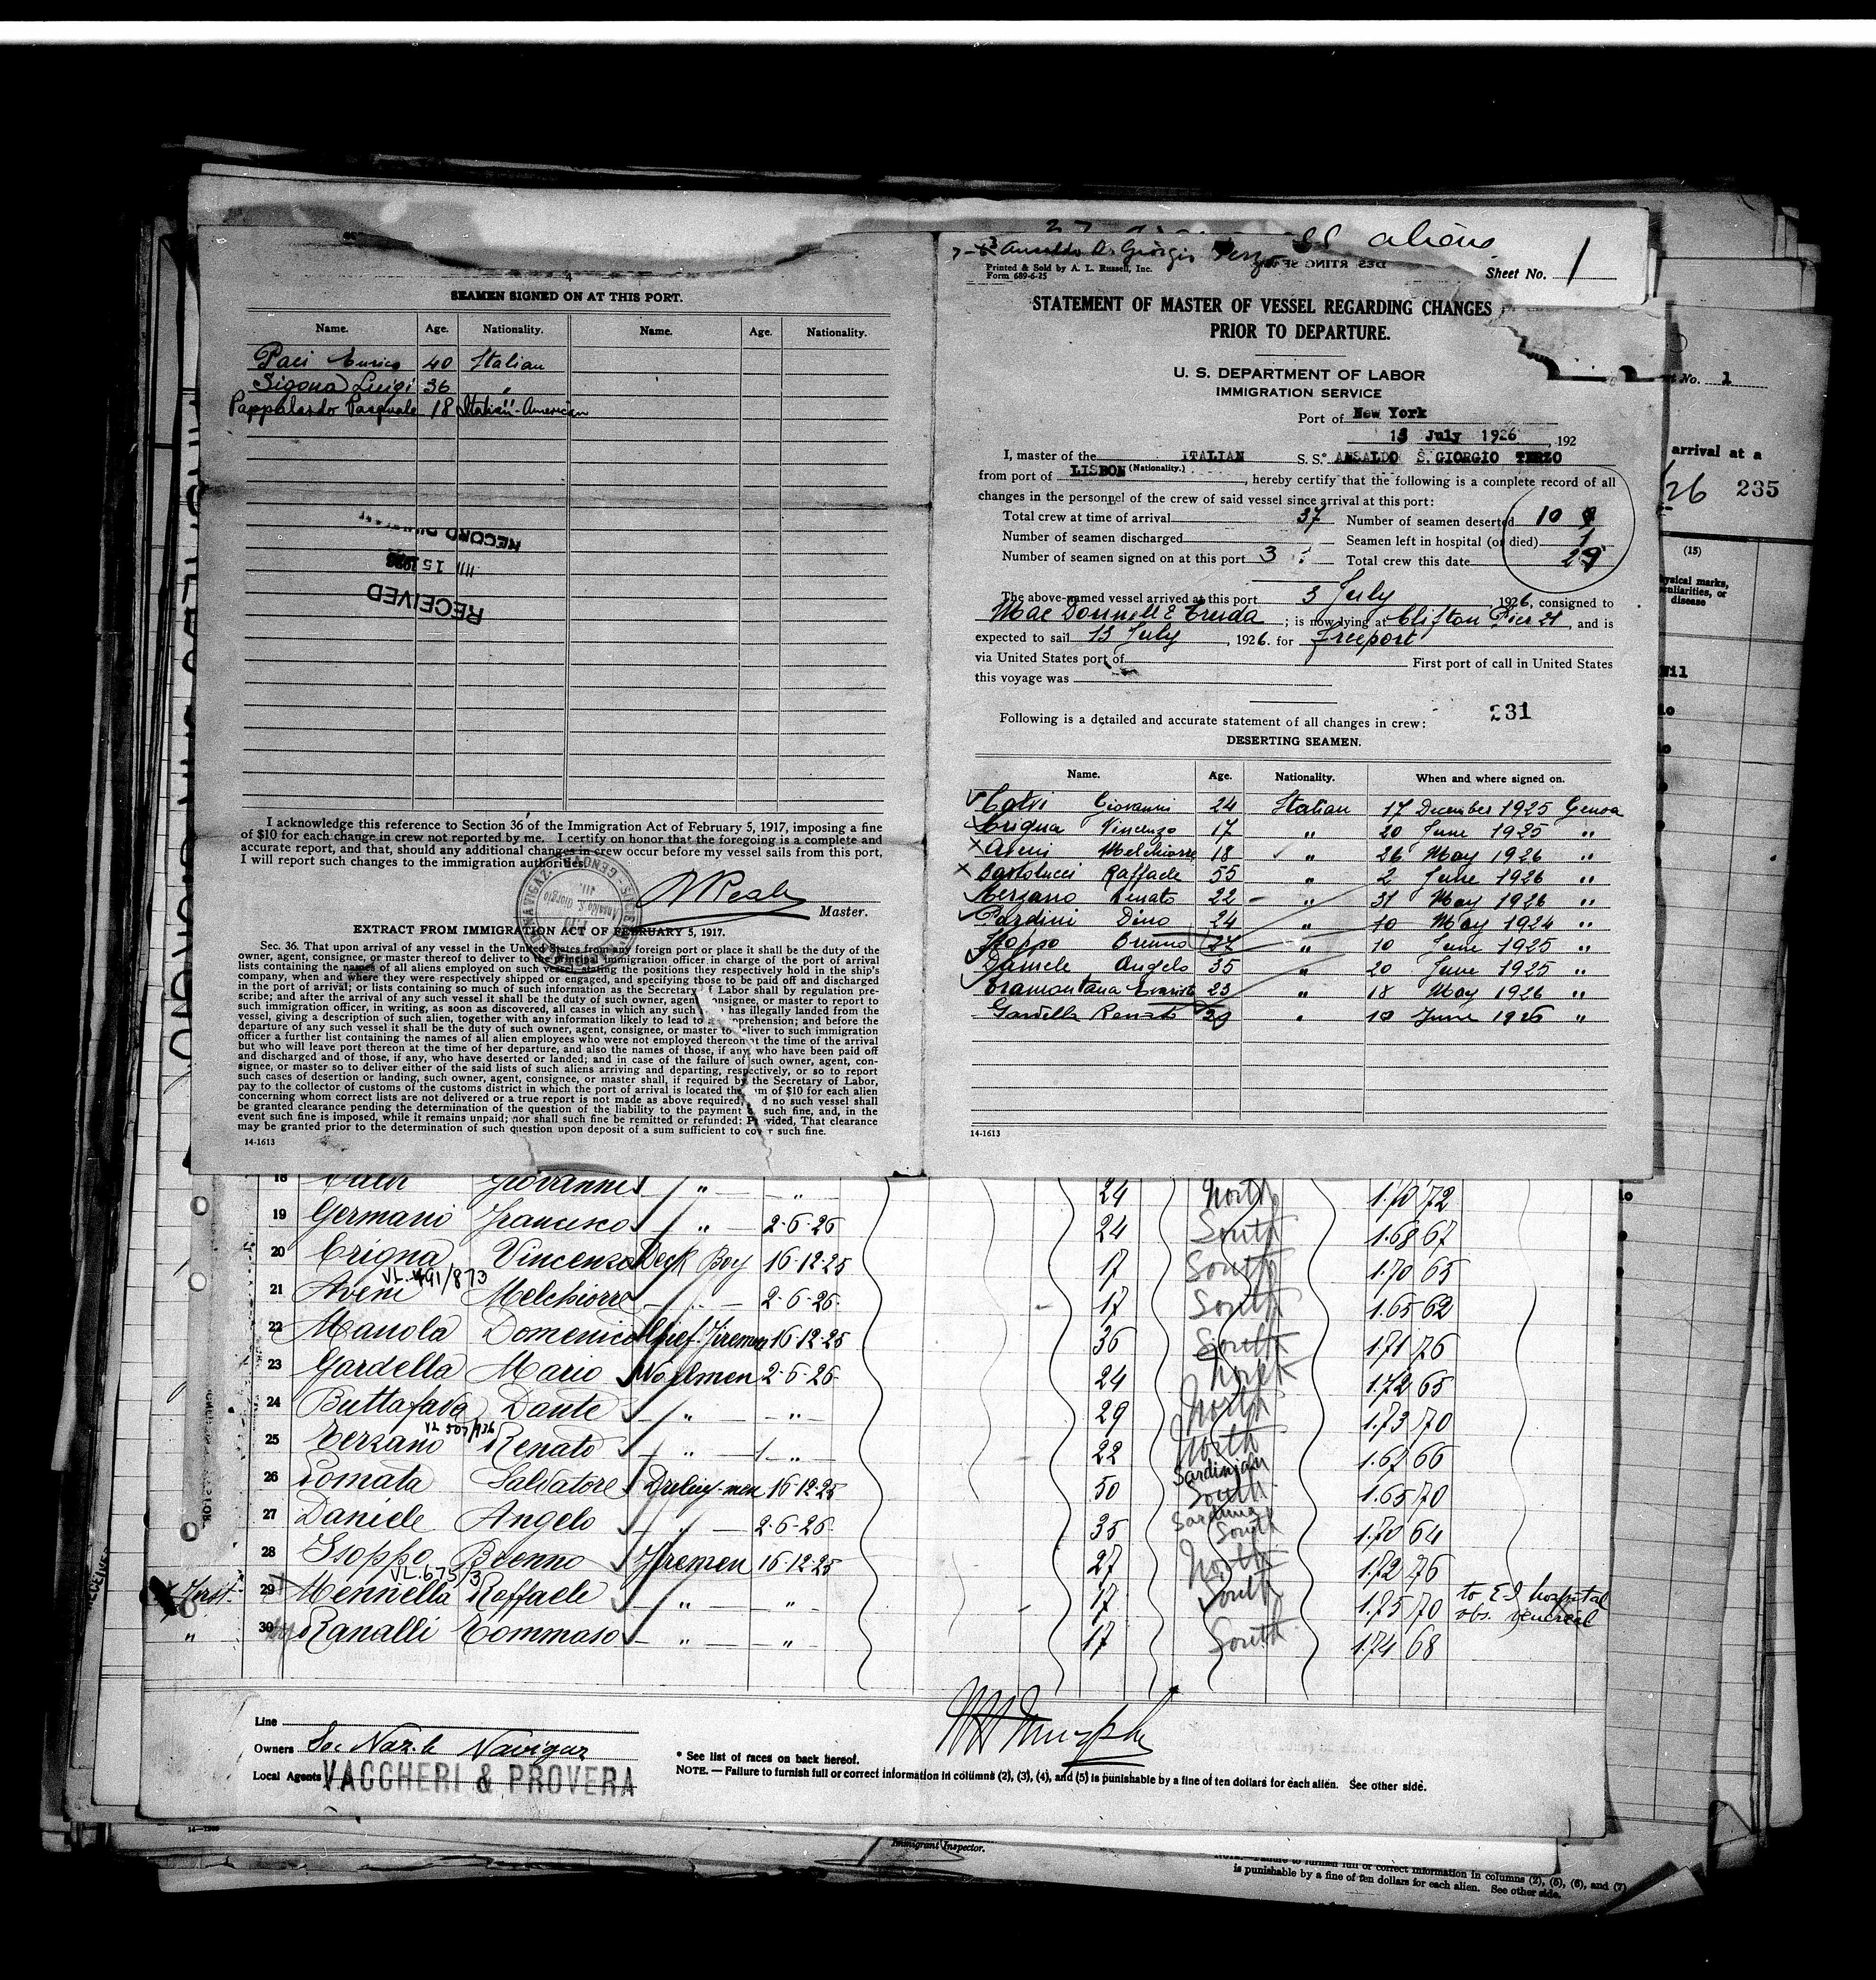 4
SEAMEN SIGNED ON AT THIS PORT.
Name. Age. Nationality. Name. Age. Nationality.
Paci Enrico 40 Italian
Sigona Luigi 36 "
Pappalardo Pasquale 18 Italian-American
RECORD
15
RECEIVED
I acknowledge this reference to Section 36 of the Immigration Act of February 5, 1917, imposing a fine
of $10 for each change in crew not reported by me. I certify on honor that the foregoing is a complete and
accurate report, and that, should any additional changes in crew occur before my vessel sails from this port,
I will report such changes to the immigration authorities.
Master.
EXTRACT FROM IMMIGRATION ACT OF FEBRUARY 5, 1917.
Sec. 36. That upon arrival of any vessel in the United States from any foreign port or place it shall be the duty of the
owner, agent, consignee, or master thereof to deliver to the principal immigration officer in charge of the port of arrival
lists containing the names of all aliens employed on such vessel, stating the positions they respectively hold in the ship's
company, when and where they were respectively shipped or engaged, and specifying those to be paid off and discharged
in the port of arrival; or lists containing so much of such information as the Secretary of Labor shall by regulation pre-
scribe; and after the arrival of any such vessel it shall be the duty of such owner, agent, consignee, or master to report to
such immigration officer, in writing, as soon as discovered, all cases in which any such has illegally landed from the
vessel, giving a description of such alien, together with any information likely to lead to apprehension; and before the
departure of any such vessel it shall be the duty of such owner, agent, consignee, or master to deliver to such immigration
officer a further list containing the names of all alien employees who were not employed thereon at the time of the arrival
but who will leave port thereon at the time of her departure, and also the names of those, if any, who have been paid off
and discharged and of those, if any, who have deserted or landed; and in case of the failure of such owner, agent, con-
signee, or master so to deliver either of the said lists of such aliens arriving and departing, respectively, or so to report
such cases of desertion or landing, such owner, agent, consignee, or master shall, if required by the Secretary of Labor,
pay to the collector of customs of the customs district in which the port of arrival is located the sum of $10 for each alien
concerning whom correct lists are not delivered or a true report is not made as above required; and no vessel shall
be granted clearance pending the determination of the question of the liability to the payment of such fine, and, in the
event such fine is imposed, while it remains unpaid; nor shall such fine be remitted or refunded: Provided, That clearance
may be granted prior to the determination of such question upon deposit of a sum sufficient to cover such fine.
14-1613
aliens
Ansaldo S. Giorgio Terzo
Printed & Sold by A. L. Russell, Inc.
Form 689-6-25
Sheet No. 1
STATEMENT OF MASTER OF VESSEL REGARDING CHANGES
PRIOR TO DEPARTURE.
U. S. DEPARTMENT OF LABOR
IMMIGRATION SERVICE
Port of New York
13 July 1926, 192
I, master of the ITALIAN S. S. ANSALDO S. GIORGIO TERZO
from port of LISBON (Nationality.), hereby certify that the following is a complete record of all
changes in the personnel of the crew of said vessel since arrival at this port:
Total crew at time of arrival 37 Number of seamen deserted 10
Number of seamen discharged Seamen left in hospital (or died) 1
Number of seamen signed on at this port 3 Total crew this date 29
The above-named vessel arrived at this port 3 July 1926, consigned to
Mac Donnell & Truda; is now lying at Clifton Pier 21, and is
expected to sail 13 July, 1926. for Freeport
via United States port of First port of call in United States
this voyage was
231
Following is a detailed and accurate statement of all changes in crew:
DESERTING SEAMEN.
Name. Age. Nationality. When and where signed on.
Calvi Giovanni 24 Italian 17 December 1925 Genoa
Crigna Vincenzo 17 " 20 June 1925 "
Aveni Melchiorre 18 " 26 May 1926 "
Bartolucci Raffaele 55 " 2 June 1926 "
Terzano Renato 22 " 31 May 1926 "
Pardini Dino 24 " 10 May 1924 "
Isoppo Brenno 27 " 10 June 1925 "
Daniele Angelo 35 " 20 June 1925 "
Tramontana Evaristo 23 " 18 May 1926 "
Gardella Renato 29 " 10 June 1926 "
14-1613
No. 1
arrival at a
26 235
(15)
18 Calvi Giovanni " " 24 North 1.70 72
19 Germano Francesco " 2-6-26 24 South 1.68 67
20 Crigna Vincenzo Deck Boy 16-12-25 17 South 1.70 65
21 Aveni Melchiorre " 2-6-26 17 South 1.65 62
22 Manola Domenico Chief Firemen 16-12-25 36 South 1.71 76
23 Gardella Mario 2-6-26 24 North 1.72 65
24 Buttafava Dante " " 29 North 1.73 70
25 Terzano Renato " " 22 North 1.67 66
26 Lomata Salvatore 16-12-25 50 Sardinian South 1.65 70
27 Daniele Angelo " 2-6-26 35 South 1.70 64
28 Isoppo Brenno Firemen 16-12-25 27 North 1.72 76
First 29 Mennella Raffaele " " 17 South 1.75 70 to E I hospital obs. venereal
" 30 Ranalli Tommaso " " 17 South 1.74 68
Line
Owners Soc Naz. le Navigaz
Local Agents VACCHERI & PROVERA
* See list of races on back hereof.
NOTE. — Failure to furnish full or correct information in columns (2), (3), (4), and (5) is punishable by a fine of ten dollars for each alien. See other side.
Immigrant Inspector.
NOTE.— Failure to furnish full or correct information in columns (2), (5), (6), and (7)
is punishable by a fine of ten dollars for each alien. See other side.